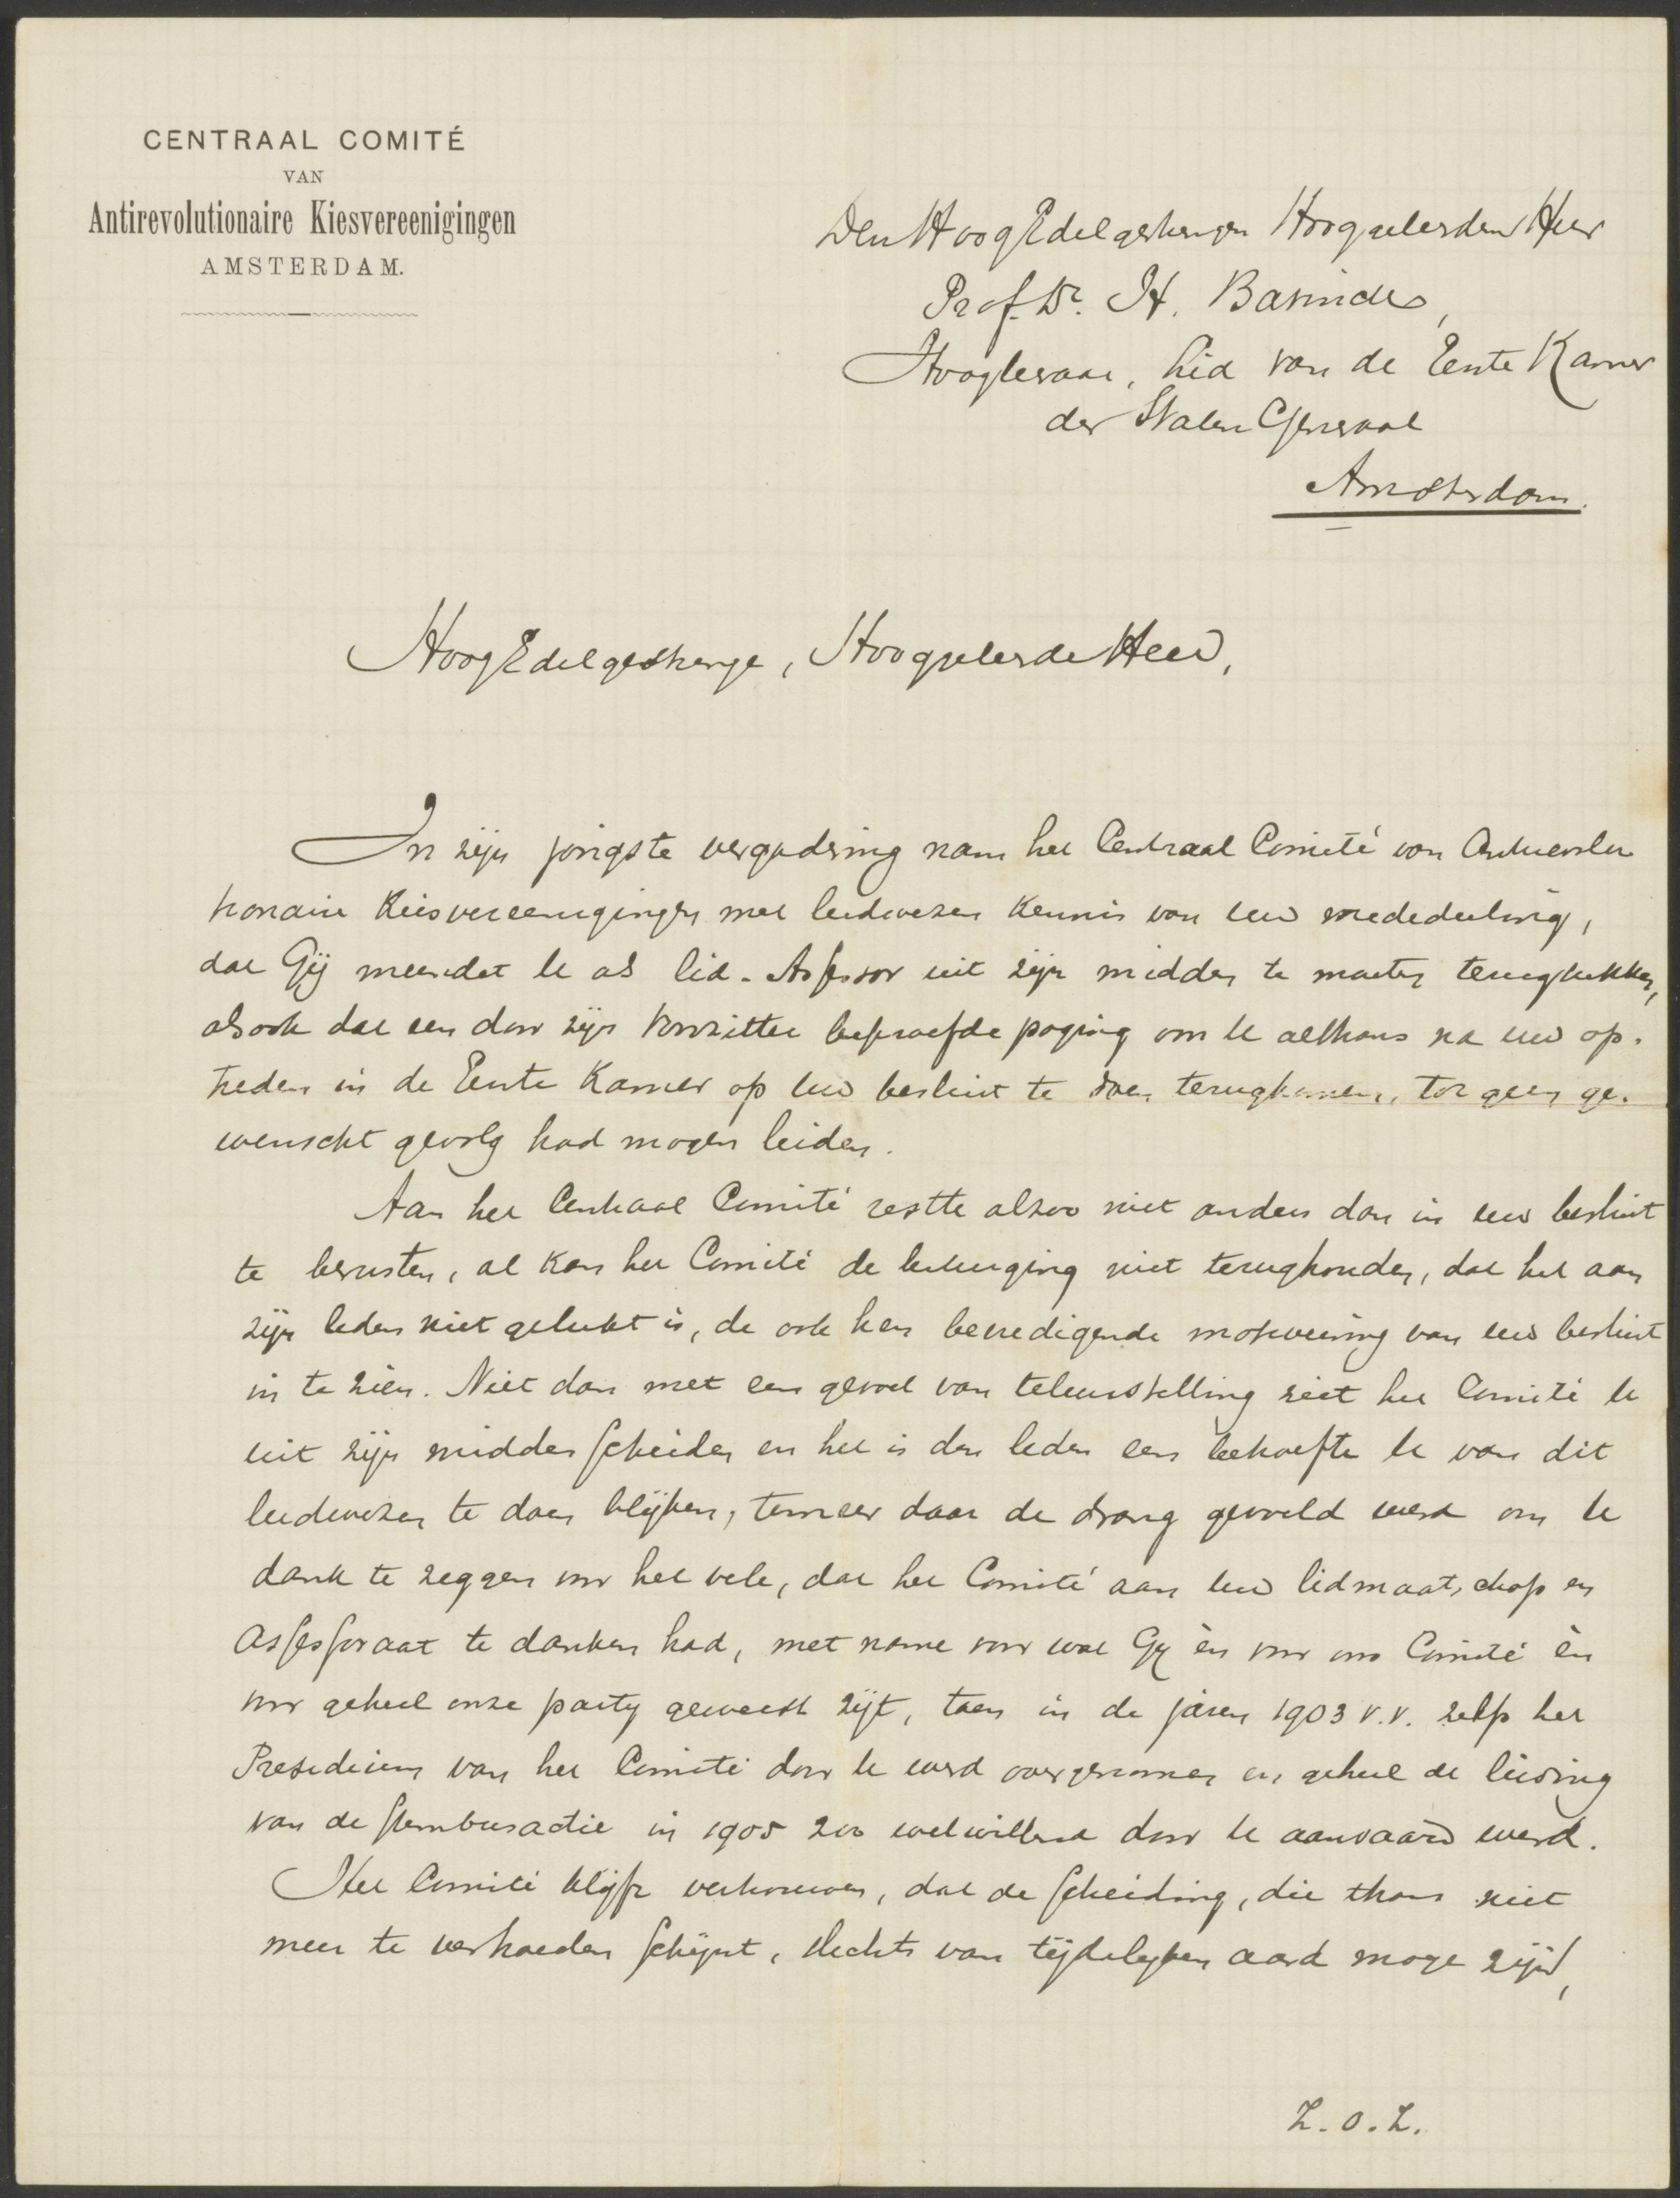 CENTRAAL COMITÉ
VAN
Antirevolutionaire Kiesvereenigingen
AMSTERDAM.
Den HoogEdelgestrengen Hooggeleerden Heer
Prof. Dr. H. Bavinck,
Hoogleeraar, Lid van de Eerste Kamer
der Staten Generaal
Amsterdam.
HoogEdelgestrenge, Hooggeleerde Heer,
In zijn jongste vergadering nam het Centraal Comité van Antirevolu
tionaire Kiesvereenigingen met leedwezen kennis van uw mededeeling,
dat Gij meendet U als lid-Assessor uit zijn midden te moeten terugtrekken,
alsook dat een door zijn Voorzitter beproefde poging om U althans na uw op-
treden in de Eerste Kamer op uw besluit te doen terugkomen, tot geen ge-
wenscht gevolg had mogen leiden.
Aan het Centraal Comité restte alzoo niet anders dan in uw besluit
te berusten, al kan het Comité de betuiging niet terughouden, dat het aan
zijn leden niet gelukt is, de ook hen bevredigende motiveering van uw besluit
in te zien. Niet dan met een gevoel van teleurstelling ziet het Comité U
uit zijn midden scheiden en het is den leden een behoefte U van dit
leedwezen te doen blijken, temeer daar de drang gevoeld werd om U
dank te zeggen voor het vele, dat het Comité aan uw lidmaatschap en
Assessoraat te danken had, met name voor wat Gij èn voor ons Comité èn
voor geheel onze party geweest zijt, toen in de jaren 1903 v.v. zelfs het
Presidium van het Comité door U werd overgenomen en geheel de leiding
van de stembusactie in 1905 zoo welwillend door U aanvaard werd.
Het Comité blijft vertrouwen, dat de scheiding, die thans niet
meer te verhoeden schijnt, slechts van tijdelijken aard moge zijn,
Z.O.Z.